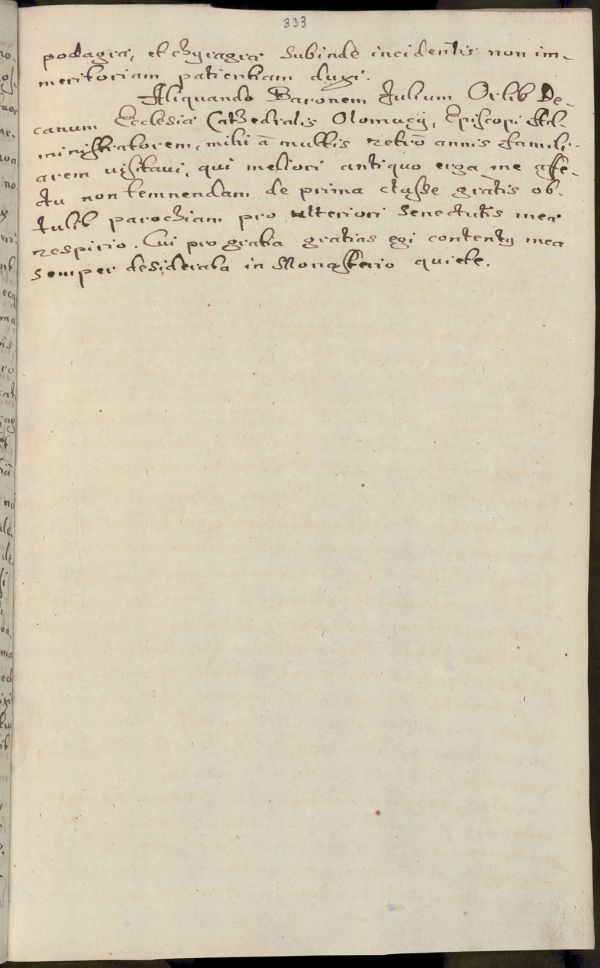 333
podagra, et chyragra subinde incidentis non im-
meritoriam patientiam duxi.
Aliquando Baronem Julium Orlib De-
canum Ecclesiæ Cathedralis Olomucÿ, Episcopi Ad-
ministratorem, mihi à multis retrò annis famili-
arem visitavi, qui meliori antiquo erga me affe-
ctu non temnendam de prima classe gratis ob-
tulit parochiam pro ulteriori senectutis meæ
respirio. Cui pro gratia gratias egi contentus mea
semper desiderata in Monasterio quiete.